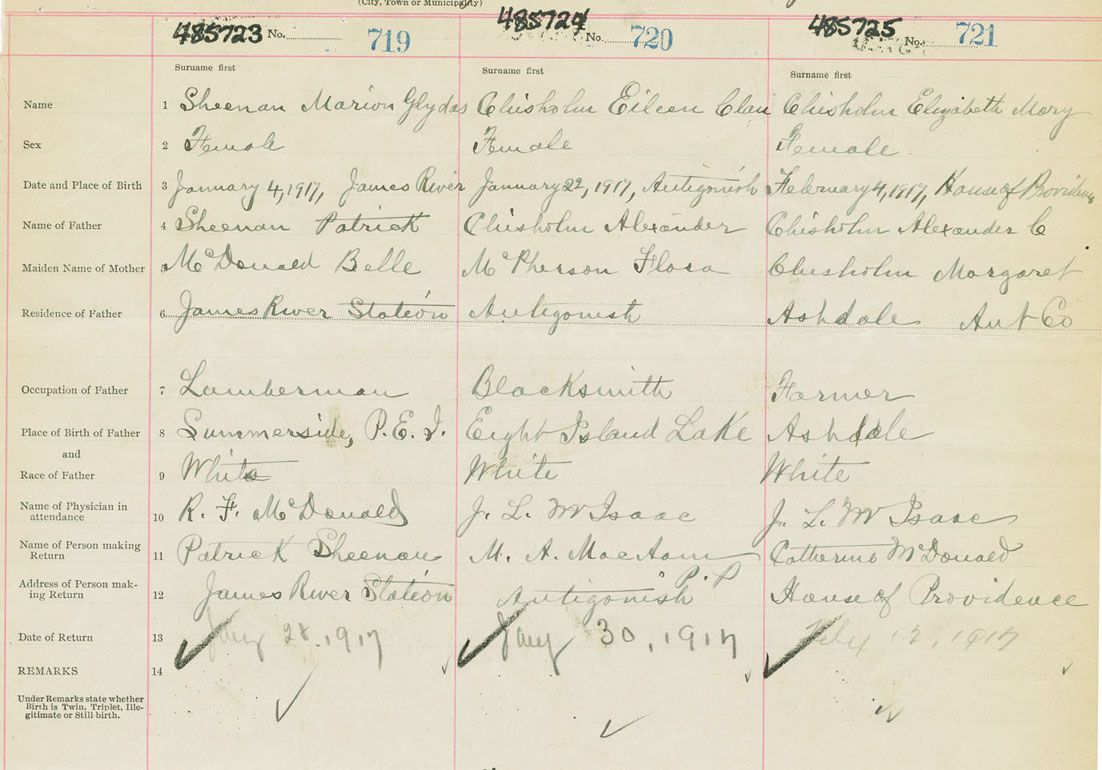 (City, Town or Municipality)
485723 No. 719 485724 No. 720 485725 No. 721
Surname first Surname first Surname first
Name 1 Sheenan Marion Glydas Chisholm Eileen Clair Chisholm Elizabeth Mary
Sex 2 Female Female Female
Date and Place of Birth 3 January 4, 1917, James River January 22, 1917, Antigonish February 4, 1917, House of Providence
Name of Father 4 Sheenan Patrick Chisholm Alexander Chisholm Alexander C
Maiden Name of Mother 5 McDonald Belle McPherson Flora Chisholm Margaret
Residence of Father 6 James River Station Antigonish Ashdale Ant Co
Occupation of Father 7 Lumberman Blacksmith Farmer
Place of Birth of Father 8 Summerside, P.E.I. Eight Island Lake Ashdale
and
Race of Father 9 White White White
Name of Physician in
attendance 10 R. F. McDonald J. L. McIsaac J. L. McIsaac
Name of Person making
Return 11 Patrick Sheenan M. A. MacAdam Catherine McDonald
P.P
Address of Person mak-
ing Return 12 James River Station Antigonish House of Providence
Date of Return 13 Jany 28, 1917 Jany 30, 1917 Feby 12, 1917
REMARKS 14
Under Remarks state whether
Birth is Twin, Triplet, Ille-
gitimate or Still-birth.